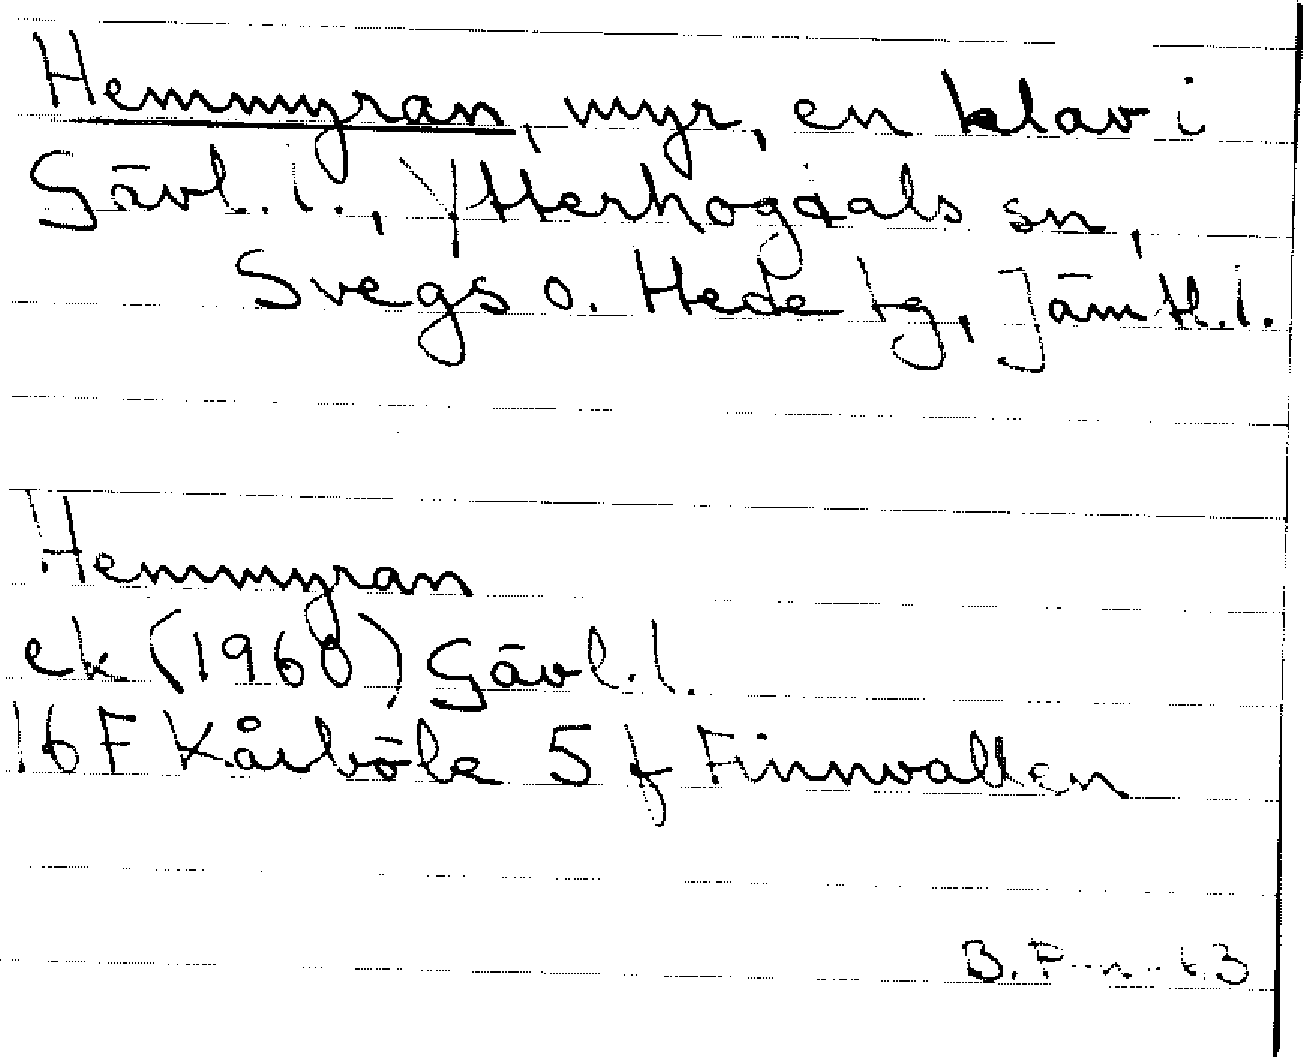 Hemmyran, myr, en klav i
Gävl. l., Ytterhogdals sn,
Svegs o. Hede tg, Jämtl. l.
Hemmyran
ek (1960) Gävl. l.
16 F Kårböle 5 f Finnvallen
B.